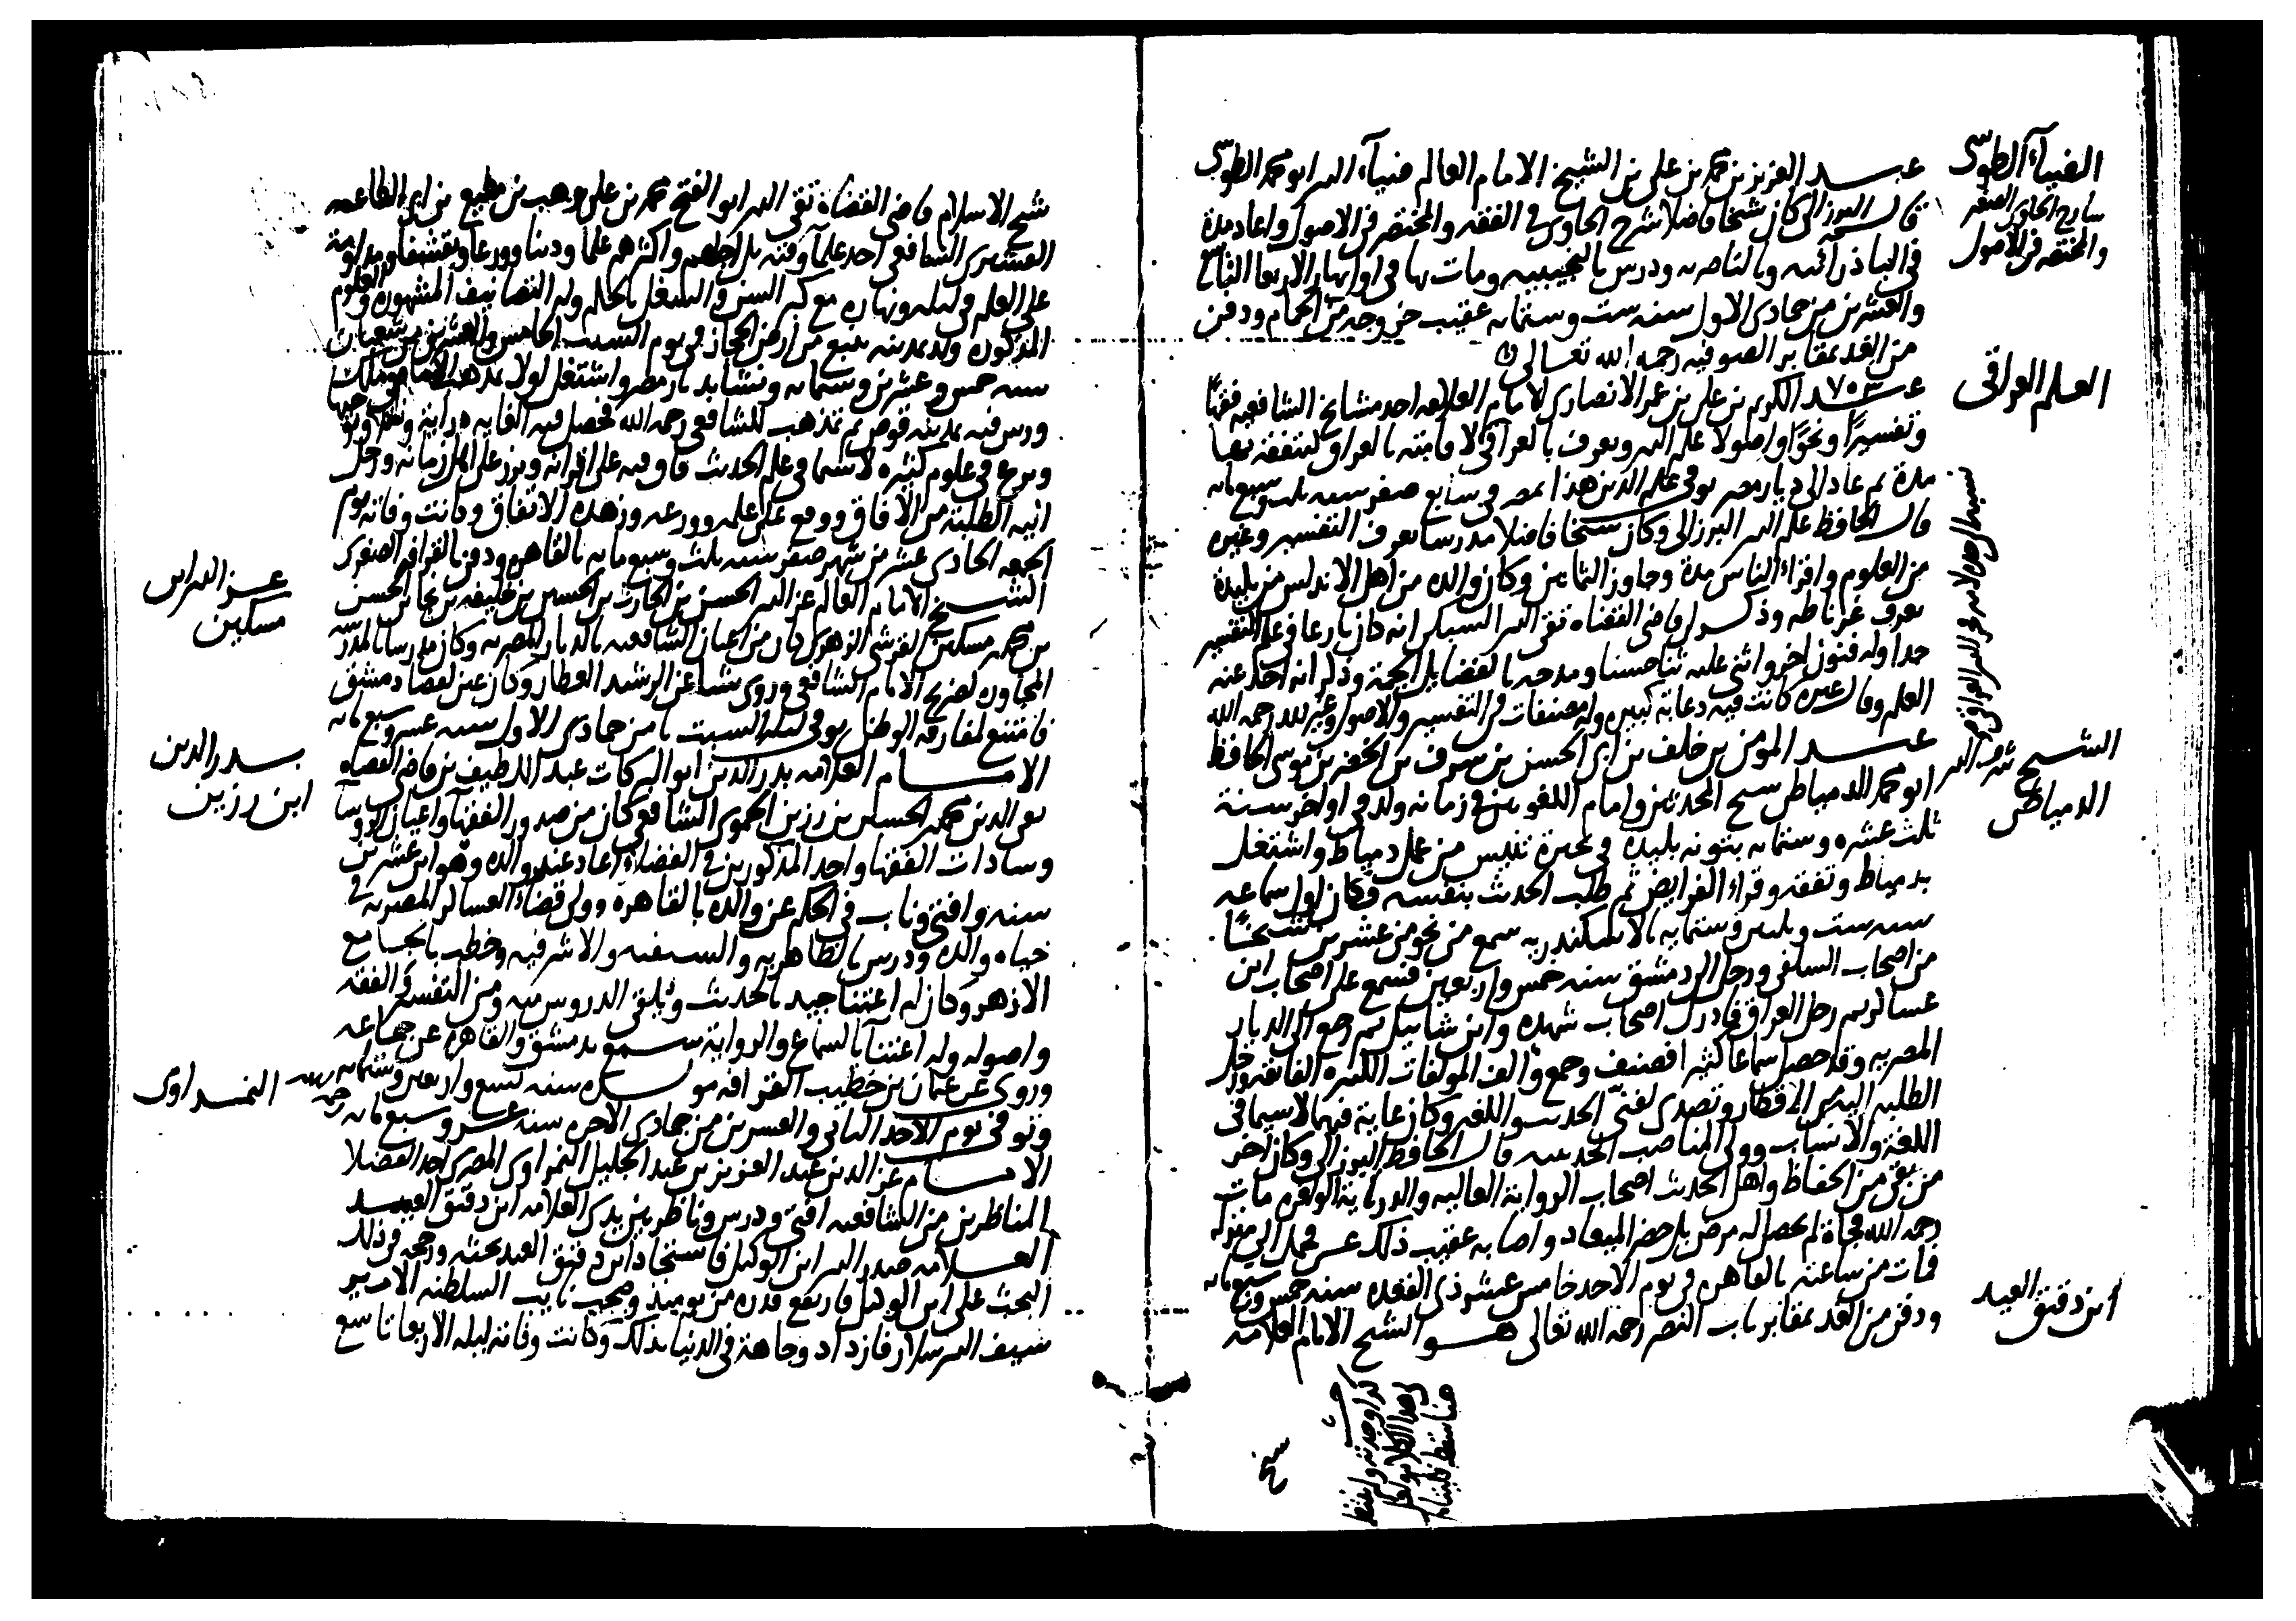 الضياء الطوسي
شارح الحاوي الصغير
والمختصر في الأصول
عبد العزيز بن محمد بن علي بن الشيخ الامام العالم ضياء الدين ابو محمد الطوسي
قال البرزالي كان شيخا فاضلا شرح الحاوي في الفقه والمختصر في الاصول واعاد مدة
في الباذرائيه وبالناصريه ودرس بالنجيبيه ومات بها في نهار الاربعا التاسع
والعشرين من جمادى الاول سنه ست وستمايه عقيب خروجه من الحمام ودفن
من الغد بمقابر الصوفيه رحمه الله تعالى
العلم العراقي
عبد الكريم بن علي بن عمر الانصاري الامام العلامه احد مشايخ الشافعيه فقها
وتفسيرًا ونحوًا واصولا علم الدين ويعرف بالعراقي لاقامته بالعراق لتفقه بها
مدة ثم عاد الى ديار مصر توفي علم الدين هذا بمصر في سابع صفر سنه ثلث وسبعمايه
قال الحافظ علم الدين البرزالي وكان شيخا فاضلا مدرسا يعرف التفسير وغيره
من العلوم واقراء الناس مدة وجاوز الثمانين وكان والده من اهل الاندلس من بليدة
تعرف غرناطه وذكر لي قاضي القضاه تقي الدين السبكي انه كان بارعا في علم التفسير
جدا وله فنون اخر واثنى عليه ثنا حسنا ومدحه بالفضايل الجمة وذكر انه اخذ عنه
العلم وقال غيره كانت فيه دعابة كبيره وله مصنفات في التفسير والاصول وغير ذلك رحمه الله
الشيخ شرف الدين
الدمياطي
عبد المومن بن خلف بن ابي الحسن بن شرف بن الخضر بن موسى الحافظ
ابو محمد الدمياطي شيخ المحدثين وامام اللغويين في زمانه ولد في اواخر سنة
ثلث عشره وستمايه بتونه بليدة في بحيرة تنيس من عمل دمياط واشتغل
بدمياط وتفقه وقراء الفرايض ثم طلب الحديث بنفسه فكان اول سماعه
سنه ست وثلثين وستمايه بالاسكندريه سمع من نحو من عشرين شيخًا
من اصحاب السلفي ورحل الى دمشق سنه خمس واربعين فسمع على اصحاب ابن
عساكر ثم رحل العراق فادرك اصحاب شهده وابن شاتيل ثم رجع الى الديار
المصريه وقد حصل سماعا كثيرا فصنف وجمع والف المولفات الكثيره الفايقه ورحل
الطلبه اليه من الاقطار وتصدى لفني الحديث واللغه وكان غاية فيهما لاسيما في
اللغة والانساب وولي المناصب قال الحافظ البرزالي وكان اخر
من بقي من الحفاظ واهل الحديث اصحاب الرواية العاليه والدراية الوافره مات
رحمه الله فجاة لم يحصل له مرض بل حضر الميعاد واصابه عقيب ذلك غشي فحمل الى منزله
فمات من ساعته بالقاهره في يوم الاحد خامس عشر ذي القعده سنه خمس وسبعمايه
ابن دقيق العيد
ودفن من الغد بمقابر باب النصر رحمه الله تعالى هو الشيخ الامام العلامه
شيخ الاسلام قاضي القضاة تقي الدين ابو الفتح محمد بن علي بن وهب بن مطيع بن ابي الطاعه
القشيري الشافعي احد علما وقته بل اجلهم واكثرهم علما ودينا وورعا وتقشفا ومداومة
على العلم في ليله ونهاره مع كبر السن والشغل بالحكم وله التصانيف المشهوره والعلوم
المذكوره ولد بمدينه ينبع من ارض الحجاز في يوم السبت الخامس والعشرين من شعبان
سنه خمس وعشرين وستمايه ونشا بديار مصر واشتغل اولا بمذهب الامام مالك
ودرس فيه بمدينه قوص ثم تمذهب للشافعي رحمه الله فحصل فيه الغايه دراية
وبرع في علوم كثيره لاسيما في علم الحديث فاق فيه على اقرانه وبرز على اهل زمانه ورحل
اليه الطلبة من الافاق ووقع على علمه وورعه وزهده الاتفاق وكانت وفاته يوم
الجمعه الحادي عشر من شهر صفر سنه ثلث وسبعمايه بالقاهره ودفن بالقرافه الصغرى
عز الدين ابن
مسكين
الشيخ الامام العالم عز الدين الحسن بن الحارث بن الحسين بن خليفه بن نجا بن الحسن
بن محمد بن مسكين القرشي الزهري كان من اعيان الشافعيه بالديار المصريه وكان مدرسا بالمدرسه
المجاوره لضريح الامام الشافعي وروى شيا عن الرشيد العطار وكان عين لقضا دمشق
فامتنع لمفارقه الوطن توفي ليله السبت من جمادى الاول سنه عشر وسبعمايه
بدر الدين
ابن رزين
الامام العلامه بدر الدين ابو البركات عبد اللطيف بن قاضي القضاه
تقي الدين محمد بن الحسين بن رزين الحموي الشافعي كان من صدور الفقهاء واعيان الروسا
وسادات الفقها واحد المذكورين في الفضلاء اعاد عند والده وهو ابن عشرين
سنه وافتى وناب في الحكم عن والده بالقاهرة وولي قضاء العساكر المصريه في
حياه والده ودرس بالظاهريه والسيفيه والاشرفيه وخطب بالجامع
الازهر وكان له اعتنا جيد بالحديث ويلقي الدروس منه ومن التفسير والفقه
واصوله وله اعتناء بالسماع والرواية سمع بدمشق والقاهره عن جماعه
وروى عن عثمان بن خطيب القرافه مولده سنه تسع واربعين وستمايه
وتوفي يوم الاحد الثاني والعشرين من جمادى الاخره سنه عشر وسبعمايه
النمراوي
الامام عز الدين عبد العزيز بن عبد الجليل النمراوي المصري احد الفضلا
المناظرين من الشافعيه افتى ودرس وناظر بين يدي العلامه ابن دقيق العيد
العلامه صدر الدين ابن الوكيل فاستجاد ابن دقيق العيد بحثه ورجحه في ذلك
البحث على ابن الوكيل فارتفع قدره من يوميذ وصحب نايب السلطنه الامير
سيف الدين سلار فازداد وجاهة في الدنيا بذلك وكانت وفاته ليله الاربعا تاسع